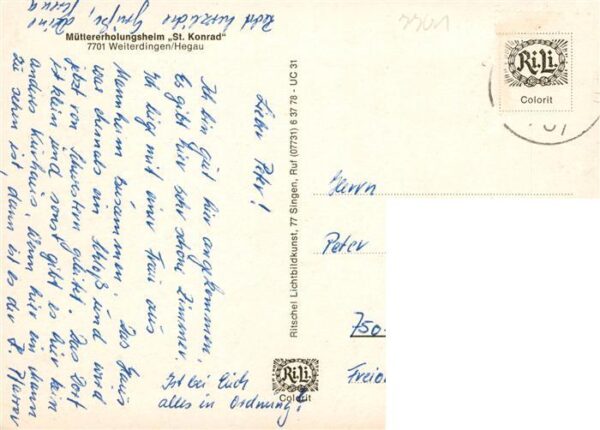 Müttererholungsheim „St. Konrad"
7701 Weiterdingen/Hegau
7701
Ri.Li.
Colorit
Lieber Peter!
Ich bin gut hier angekommen.
Es gibt hier sehr schöne Zimmer.
Ich liege mit einer Frau aus
Mannheim zusammen. Das Haus
war ehemals ein Schloß und wird
jetzt von Schwestern geleitet. Das Dorf
ist klein und sonst gibt es hier kein
anderes Kurhaus. Wenn hier ein Mann
zu sehen ist, dann ist es der H. Pfarrer
Ist bei Euch
alles in Ordnung?
Recht herzliche Grüße, Deine
Ritschel Lichtbildkunst, 77 Singen, Ruf (07731) 6 37 78 - UC 31
Ri.Li.
Colorit
Herrn
Peter
750